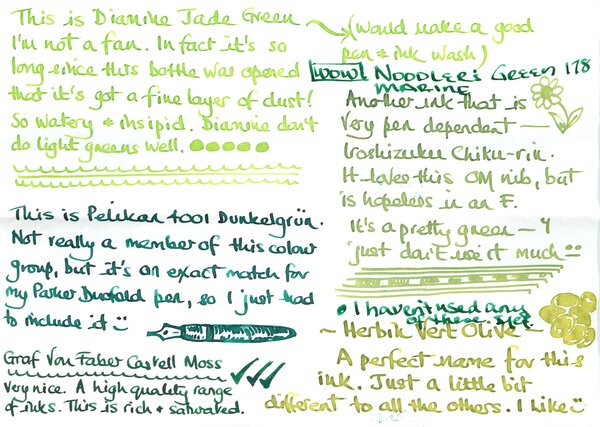 This is Diamine Jade Green
I'm not a fan. In fact it's so
long since this bottle was opened
that it's got a fine layer of dust!
So watery & insipid. Diamine don't
do light greens well.
(Would make a good
pen & ink wash)
WOW! Noodler's Green 178
MARINE
Another ink that is
very pen dependent —
Iroshizuku Chiku-rin.
It loves this OM nib, but
is hopeless in an F.
It's a pretty green — I
just don't use it much
This is Pelikan 4001 Dunkelgrün.
Not really a member of this colour
group, but it's an exact match for
my Parker Duofold pen, so I just had
to include it
Graf Von Faber Castell Moss
Very nice. A high quality range
of inks. This is rich & saturated.
• I haven't used any
of these yet
~ Herbin Vert Olive ~
A perfect name for this
ink. Just a little bit
different to all the others. I like